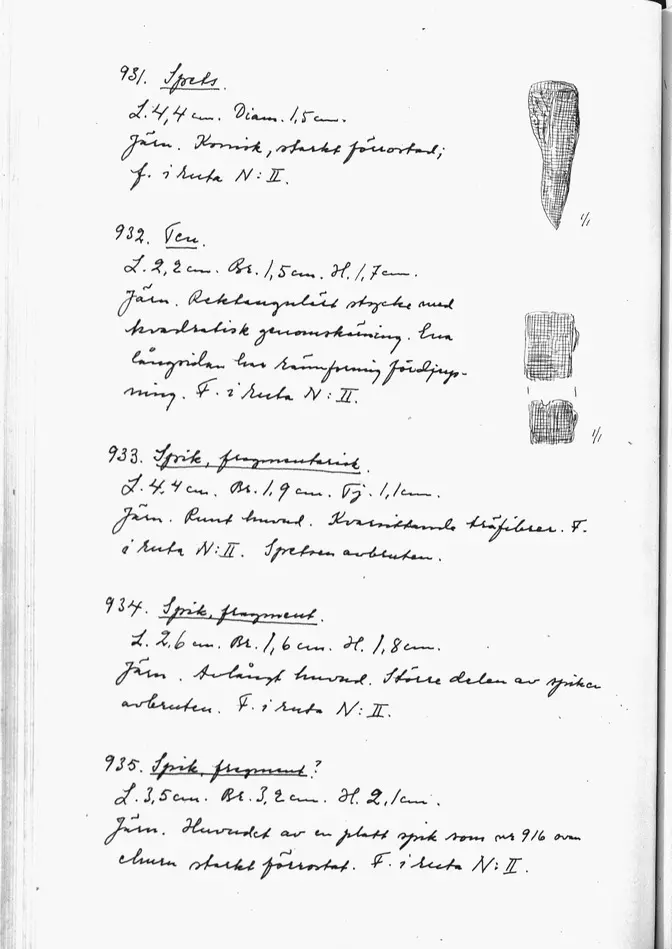 931. Spets.
L. 4,4 cm. Diam. 1,5 cm.
Järn. Konisk, starkt förrostad;
f. i ruta N: II.
1/1
932. Ten.
L. 2,2 cm. Br. 1,5 cm. H. 1,7 cm.
Järn. Rektangulärt stycke med
kvadratisk genomskäning. Ena
långsidan har rännformig fördjup-
ning. F. i ruta N: II.
1/1
933. Spik, fragmentarisk.
L. 4,4 cm. Br. 1,9 cm. Tj. 1,1 cm.
Järn. Runt huvud. Kvarsittande träfibrer. F.
i ruta N: II. Spetsen avbruten.
934. Spik, fragment.
L. 2,6 cm. Br. 1,6 cm. H. 1,8 cm.
Järn. Avlångt huvud. Större delen av spiken
avbruten. F. i ruta N: II.
935. Spik, fragment?
L. 3,5 cm. Br. 3,2 cm. H. 2,1 cm.
Järn. Huvudet av en platt spik som nr 916 ovan
starkt förrostat. F. i ruta N: II.